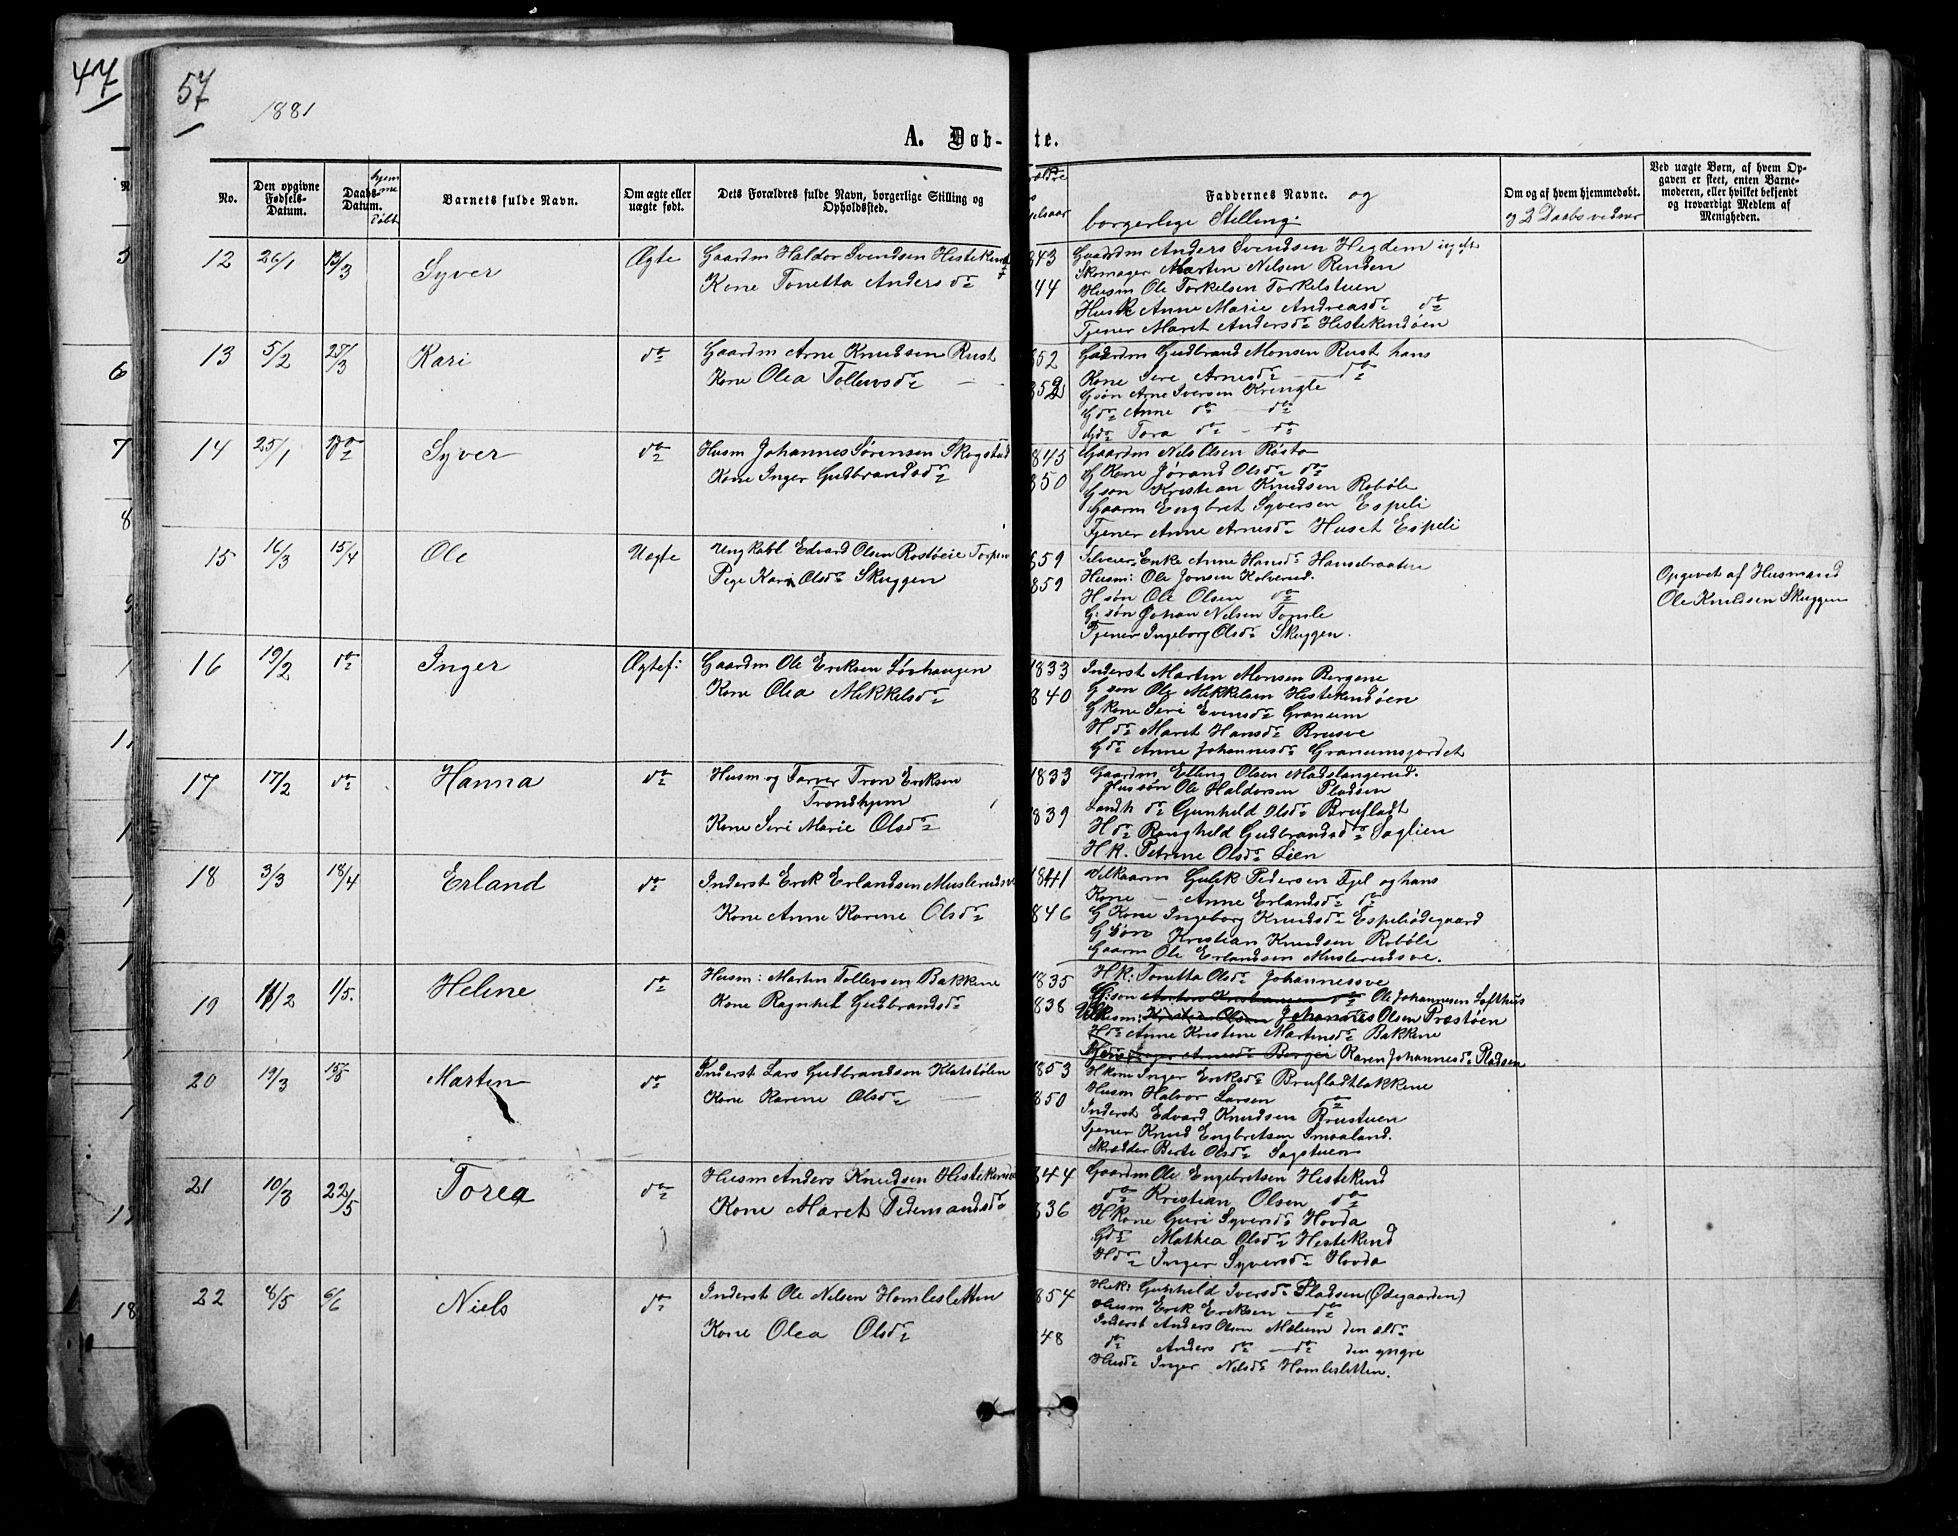 47
57
1881
A. Døb-te.
No.
Den opgivne Fødsels-Datum.
Daabs-Datum.
hjemme døbt
Barnets fulde Navn.
Om ægte eller uægte født.
Dets Forældres fulde Navn, borgerlige Stilling og Opholdssted.
Faddernes Navne. og
borgerlige Stilling.
Om og af hvem hjemmedøbt.
og 2 Daabsvidner
Ved uægte Børn, af hvem Opgaven er skeet, enten Barnemoderen, eller hvilket bekjendt og troværdigt Medlem af Menigheden.
12 26/1 13/3 Syver Ægte Gaardm Haldor Svendsen Histekind
Kone Tonetta Andersdr
843
844
Gaardm Anders Svendsen Hegdem
Skomager Martin Nilsen Rinden
Husm Ole Torkelsen Torkelstuen
Husk Anne Marie Andreasdr do
Tjener Maret Andersdr Histekindøen
13 5/2 25/3 Kari do Gaardm Arne Knudsen Rust
Kone Olea Tollevsdr —
852
Gaardm Gudbrand Monsen Rust hans
Kone Sire Arnesdr — do
Gsøn Arne Iversen Kringle
Gdr Anne do — do
Gdr Tora do - do
14 25/1 do Syver do Husm Johannes Sørensen Skogstad
Kone Inger Gudbrandsdr
1845
850
Gaardm Nils Olsen Røsto
G Kone Jørand Olsdr do
G søn Kristian Knudsen Robøle
Gaarm Engbret Syversen Espeli
Tjener Anne Arnesdr Huset Espeli
15 16/3 15/4 Ole Uægte Ungkarl Edvard Olsen Rostøeie Torpen
Pige Kari Olsdr Skuggen
859
859
Enke Anne Hansdr Hansebraaten
Husm: Ole Jonsen Kolverud.
H søn Ole Olsen do
G: søn Johan Nilsen Tomle
Tjener Ingeborg Olsdr Skuggen.
Opgevet af Husmand
Ole Knudsen Skuggen
16 19/2 do Inger Ægtef: Gaardm Ole Eriksen Løvhaugen
Kone Olea Mikkelsdr
1833
840
Inderst Martin Monsen Bergene
G søn Ole Mikkelsen Histekindøen
G kone Siri Evensdr Granum
H dr Maret Hansdr Brusve
Gdr Anne Johannesdr Granumsjordet
17 17/2 do Hanna do Husm og Farver Tron Eriksen
Trondhjem
Kone Siri Marie Olsdr
1833
1839
Gaardm Elling Olsen Madslangerud.
Hussøn Ole Haldorsen Pladsen
Landh dr Gunhild Olsdr Brufladt
H dr Ranghild Gudbrandsdr Saglien
H k. Petrine Olsdr Lien
18 3/3 18/4 Erland do Inderst Erik Erlandsen Muslerudsve
Kone Anne Karine Olsdr
1841
846
Vilkaarm Gulik Pedersen Fjel og hans
Kone — Anne Erlandsdr do
G Kone Ingeborg Knudsdr Espeliødegaard
G Søn Kristian Knudsen Robøle
Gaarm Ole Erlandsen Muslerudsve.
19 11/2 1/5. Helene do Husm: Martin Tollevsen Bakkene
Kone Ragnhil Gudbrandsdr
1835
838
H k: Tonetta Olsdr Johannessve
G:søn Ole Johannesen Lofthus
Husm: Johannes Olsen Præstøen
Hdr Anne Kristine Martinsdr Bakkene
Karen Johannesdr Pladsen
20 19/3 Martin do Inderst Lars Gudbrandsen Klatstølen
Kone Karine Olsdr —
1853
850
H kone Inger Eriksdr Brufladtbakkene
Husm Halvor Larsen do
Inderst Edvard Knudsen Brustuen
Tjener Knud Engbretsen Smaaland.
Skrædder Berte Olsdr Sagstuen
21 10/3 22/5 Torea do Husm Anders Knudsen Histekind
Kone Maret Tidemandsdr
844
836
Gaardm Ole Engebretsen Histekind
do Kristian Olsen do
H Kone Guri Syversdr Hovda
Gdr Mathea Olsdr Histekind
Hdr Inger Syversdr Hovda
22 8/5 6/6 Niels do Inderst Ole Nilsen Homlesletten
Kone Olea Olsdr
854
48
Husk: Gunhild Iversdr Pladsen (Ødegaarden)
Husm Erik Eriksen — do
Inderst Anders Olsen Mælum den eldr
do Anders do — do den yngre
Husdr Inger Nilsdr Homlesletten.